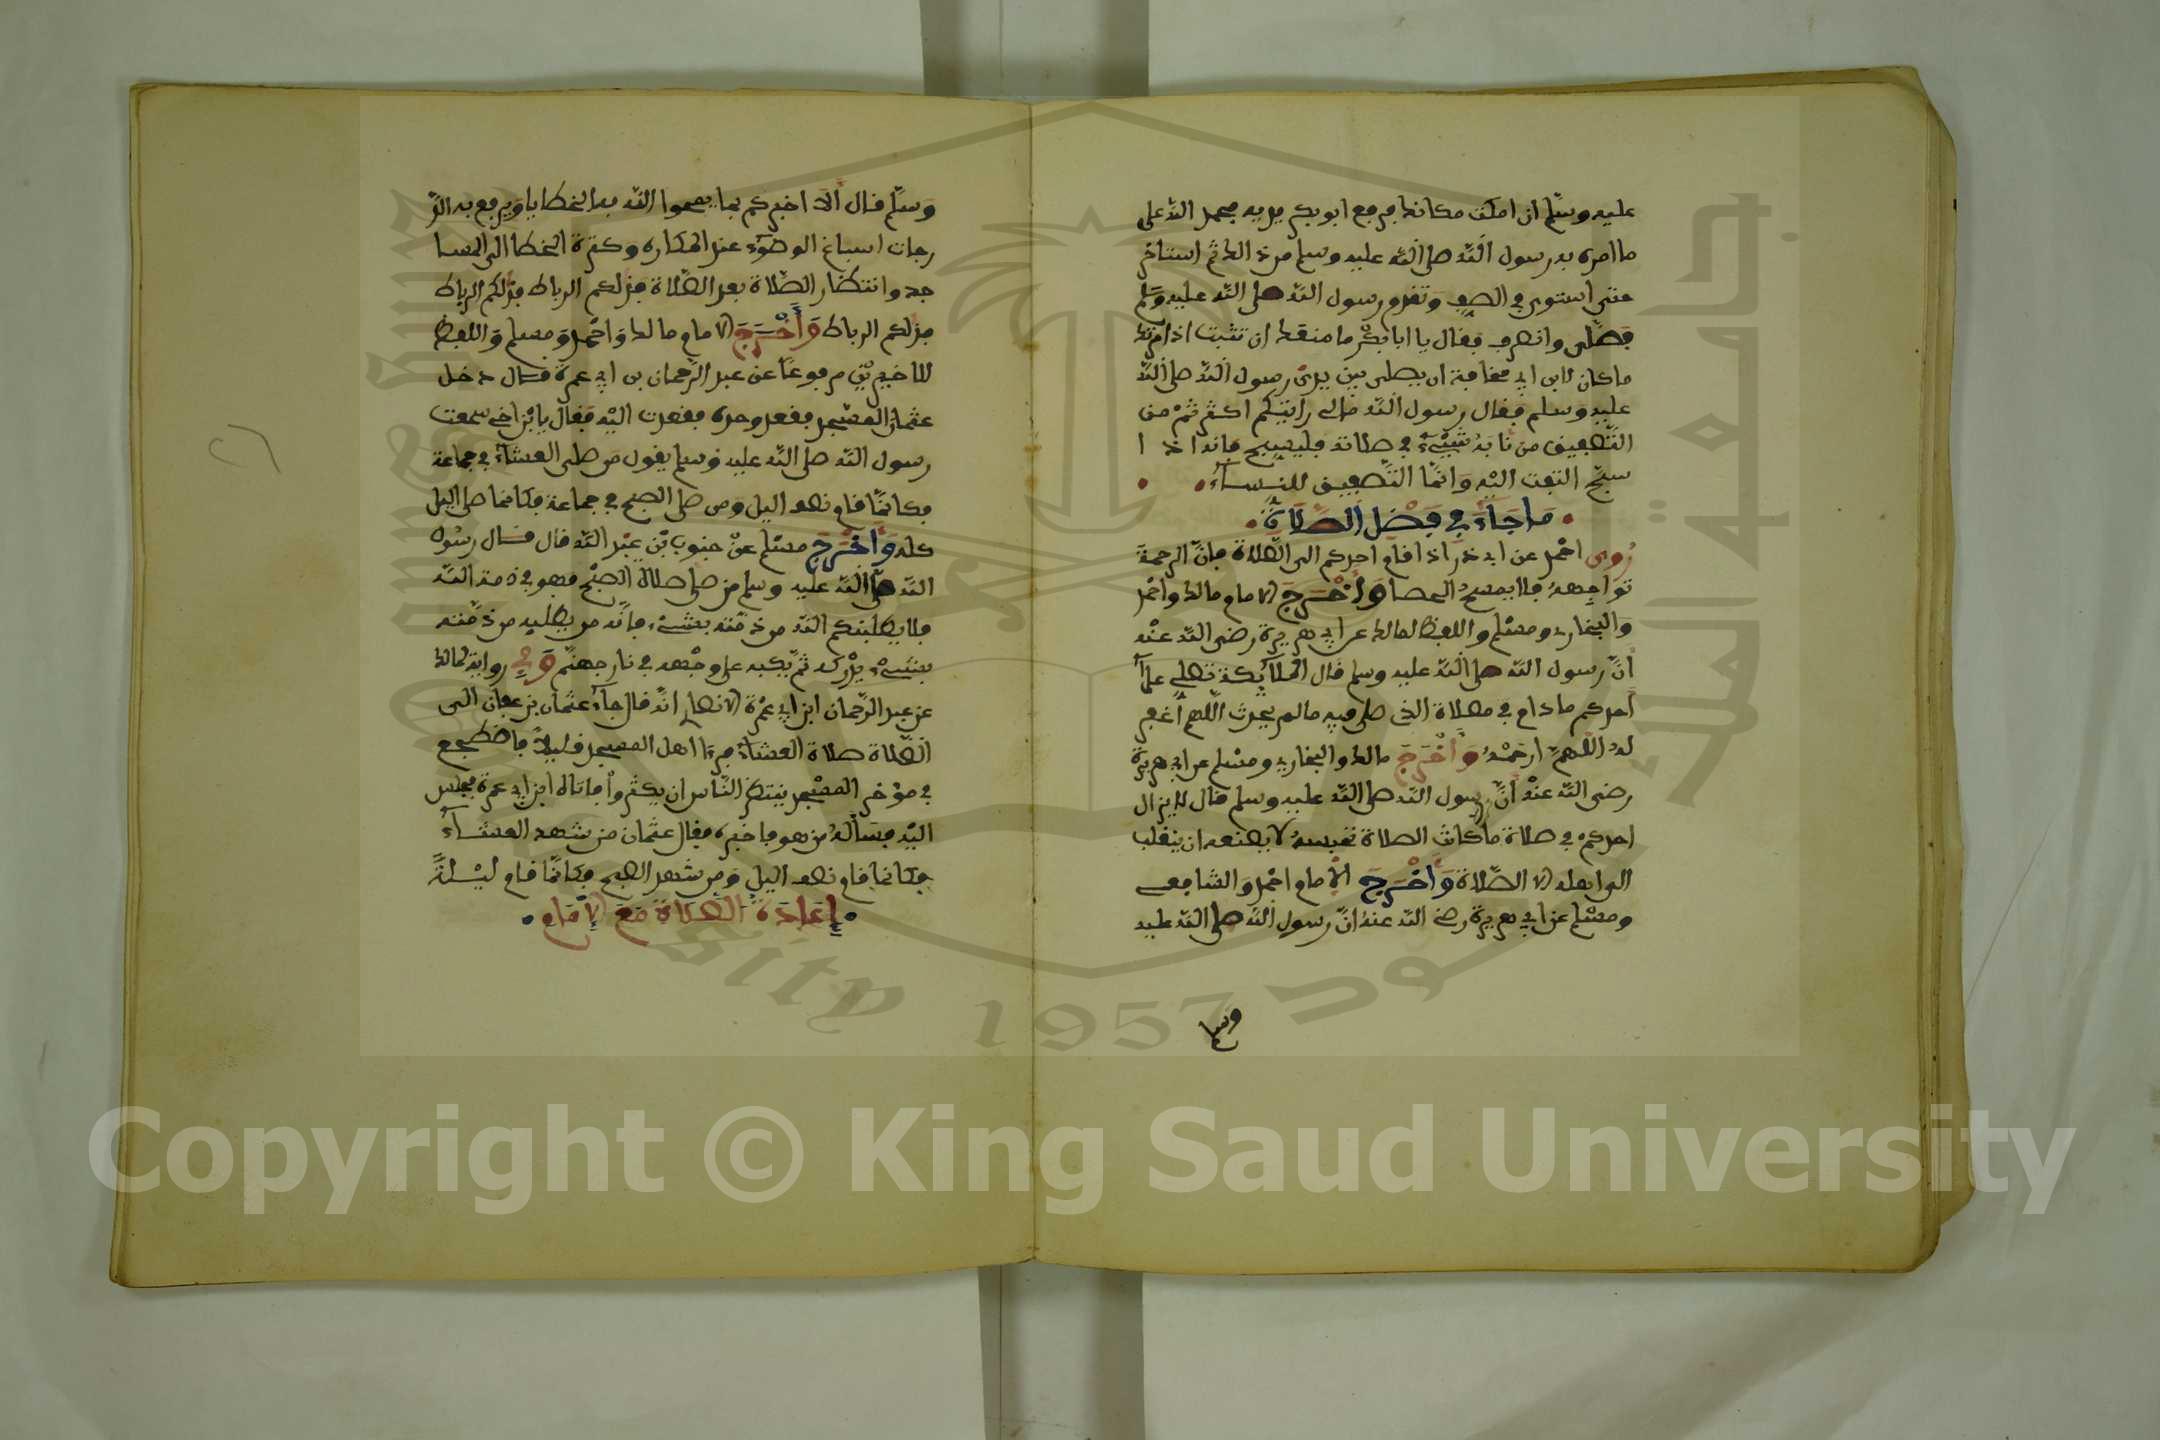 عليه وسلم ان امكث مكانك فرفع ابو بكر يديه فحمد الله على
ما امره به رسول الله صلى الله عليه وسلم من ذلك ثم استاخر
حتى استوى في الصف وتقدم رسول الله صلى الله عليه وسلم
فصلى وانصرف فقال يا ابا بكر ما منعك ان تثبت اذ امرتك
ما كان لابن ابي قحافة ان يصلي بين يدي رسول الله صلى الله
عليه وسلم فقال رسول الله مالي رايتكم اكثرتم من
التصفيق من نابه شيء في صلاته فليسبح فانه اذا
سبح التفت اليه وانما التصفيق للنساء
ما جاء في فضل الصلاة
روى احمد عن ابي ذر اذا قام احدكم الى الصلاة فان الرحمة
تواجهه فلا يمسح الحصا وأخرج الامام مالك واحمد
والبخاري ومسلم واللفظ لمالك عن ابي هريرة رضي الله عنه
أن رسول الله صلى الله عليه وسلم قال الملائكة تصلي على
أحدكم ما دام في مصلاه الذي صلى فيه ما لم يحدث اللهم اغفر
له اللهم ارحمه وأخرج مالك والبخاري ومسلم عن ابي هريرة
رضي الله عنه أن رسول الله صلى الله عليه وسلم قال لا يزال
احدكم في صلاة ما كانت الصلاة تحبسه لا يمنعه ان ينقلب
الى اهله الا الصلاة وأخرج الامام احمد والشافعي
ومسلم عن ابي هريرة رضي الله عنه ان رسول الله صلى الله عليه
وسلم
وسلم قال ألا اخبركم بما يمحوا الله به الخطايا ويرفع به الد
رجات اسباغ الوضوء عند المكاره وكثرة الخطا الى المسا
جد وانتظار الصلاة بعد الصلاة فذلكم الرباط فذلكم الرباط
فذلكم الرباط وأخرج الامام مالك واحمد ومسلم واللفظ
للاخيرين مرفوعا عن عبد الرحمان بن ابي عمرة قال دخل
عثمان المسجد فقعد وحده فقعدت اليه فقال يا بن اخي سمعت
رسول الله صلى الله عليه وسلم يقول من صلى العشاء في جماعة
فكانما قام نصف اليل ومن صلى الصبح في جماعة فكانما صلى اليل
كله وأخرج مسلم عن جندب بن عبد الله قال قال رسول
الله صلى الله عليه وسلم من صلى صلاة الصبح فهو في ذمة الله
فلا يطلبنكم الله من ذمته بشيء فانه من يطلبه من ذمته
بشيء يدركه ثم يكبه على وجهه في نار جهنم وفي رواية لمالك
عن عبد الرحمان ابن ابي عمرة الانصاري انه قال جاء عثمان بن عفان الى
الصلاة صلاة العشاء فرءا أهل المسجد قليلا فاضطجع
في مؤخر المسجد ينتظر الناس ان يكثروا فاتاه ابن ابي عمرة فجلس
اليه فسأله من هو فاخبره فقال عثمان من شهد العشاء
فكانما قام نصف اليل ومن شهد الصبح فكانما قام ليلة
إعادة الصلاة مع الامام
Copyright © King Saud University
1957